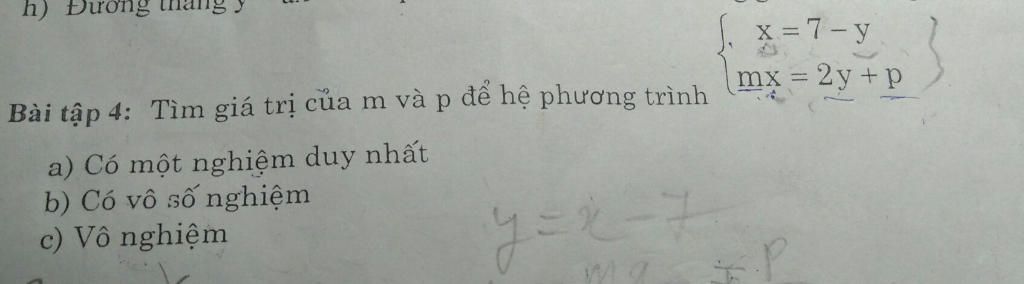 h) Đường thẳng y
x = 7 – y
mx = 2y + p
Bài tập 4: Tìm giá trị của m và p để hệ phương trình
a) Có một nghiệm duy nhất
b) Có vô số nghiệm
c) Vô nghiệm
y = x - 7